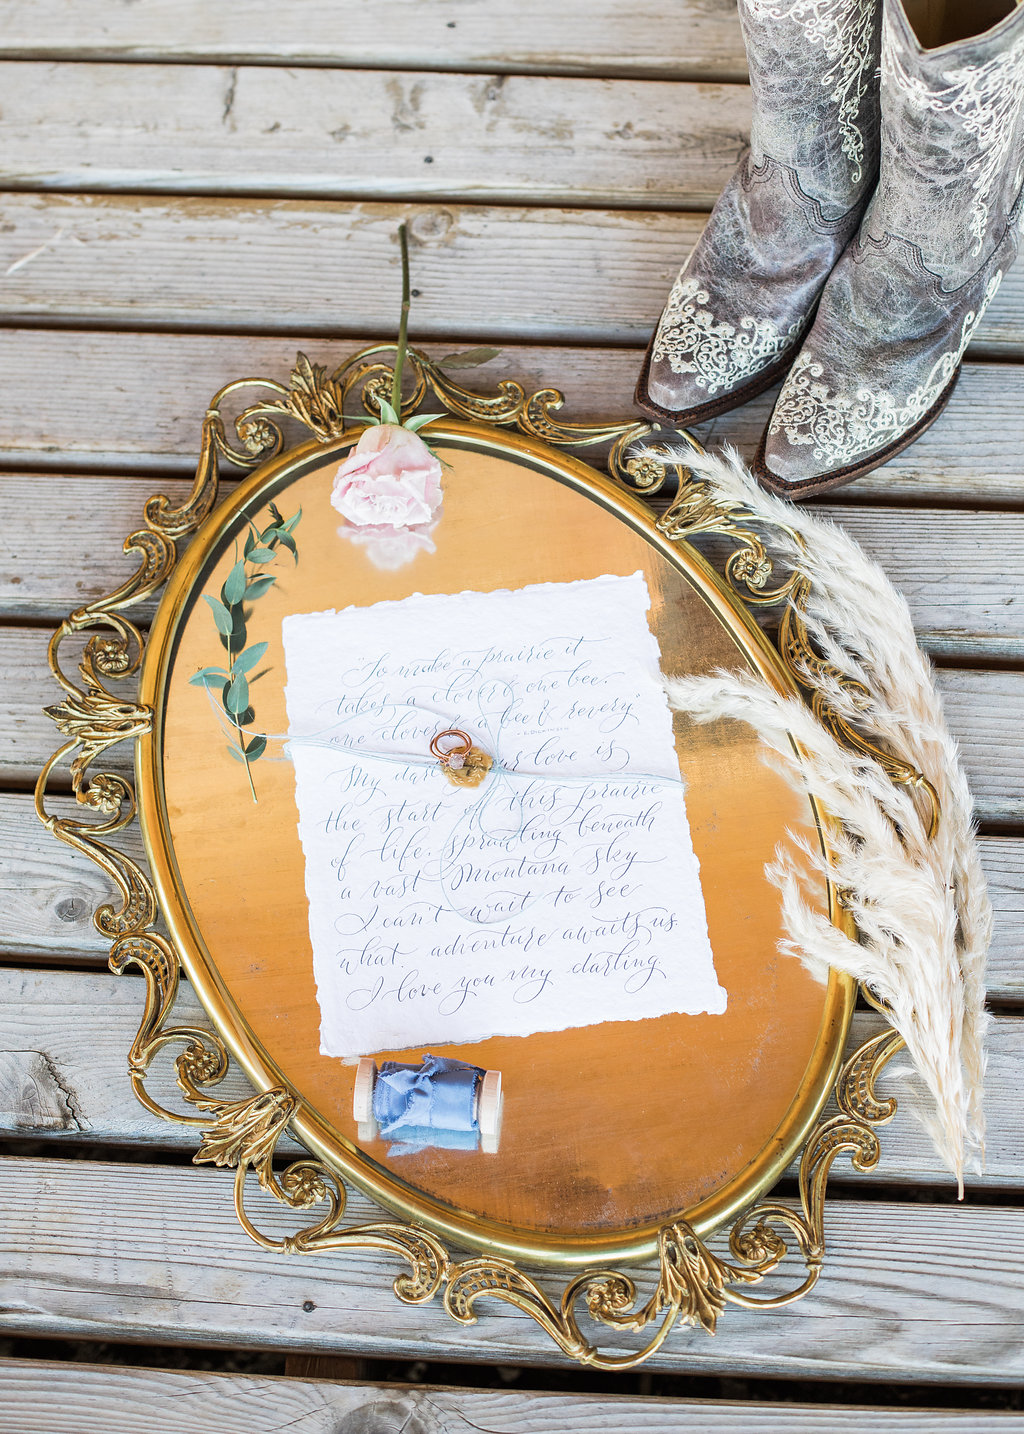 "To make a prairie it
takes a clover & one bee.
one clover & a bee & revery"
- E. DICKINSON
My dar ur love is
the start of this prairie
of life. sprawling beneath
a vast Montana sky
I can't wait to see
what adventure awaits us.
I love you my darling.